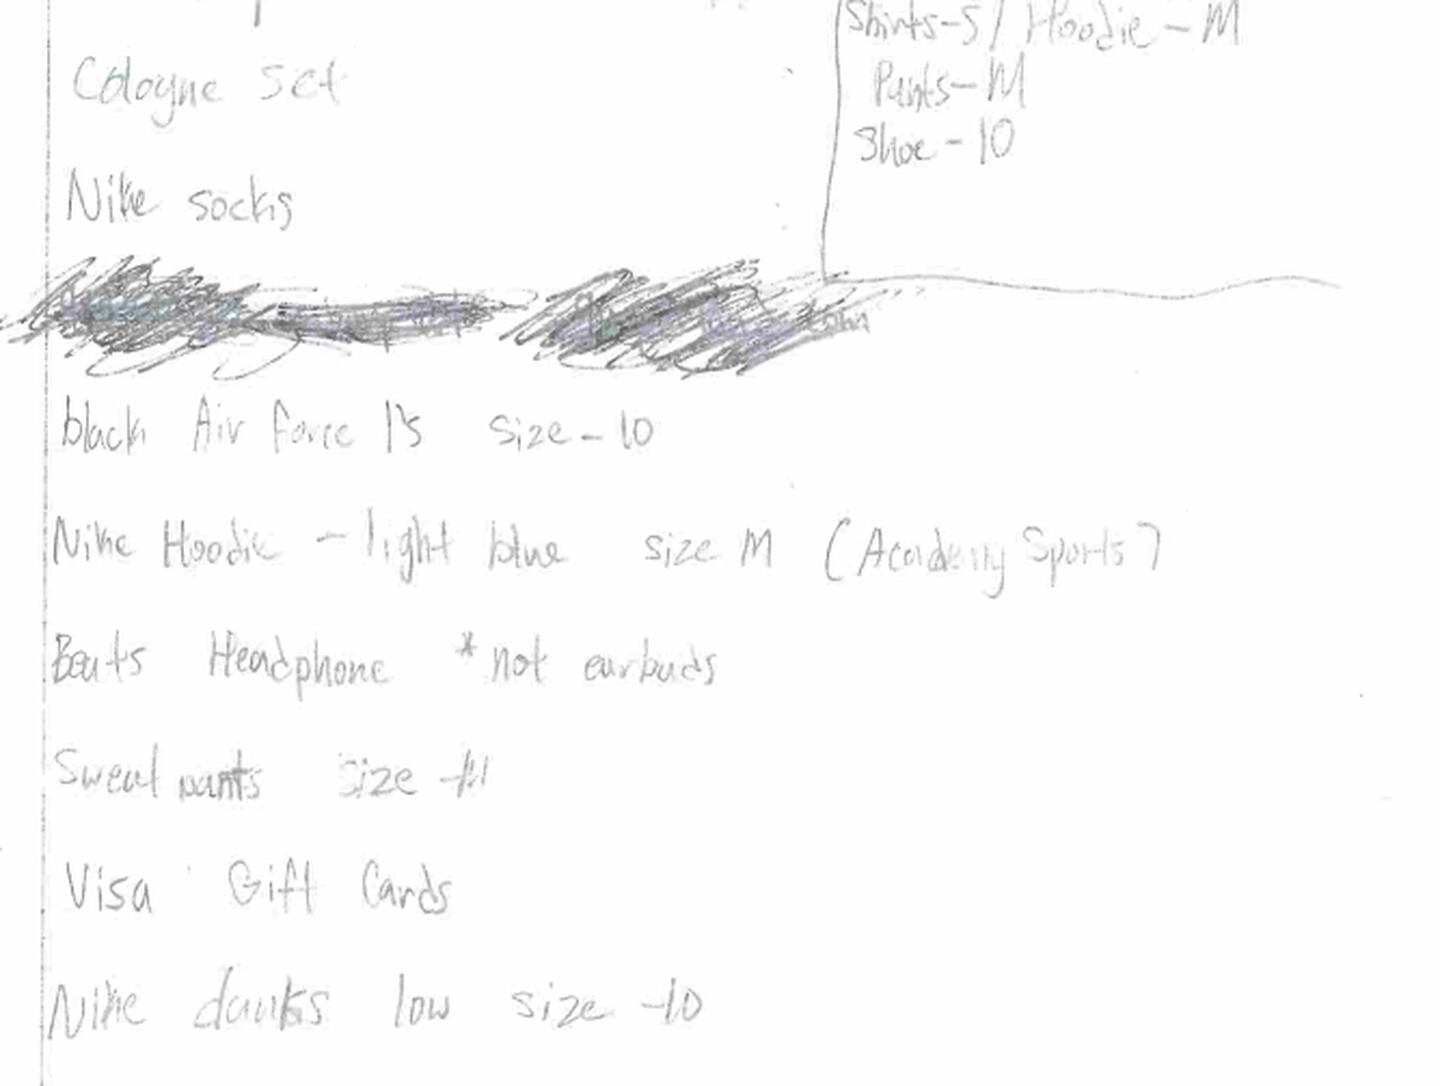 Shirts-S / Hoodie - M
Pants-M
Shoe - 10
Cologne set
Nike socks
black Air force 1's size - 10
Nike Hoodie - light blue size M (Academy Sports)
Beats Headphone *not earbuds
Sweat pants size -M
Visa Gift Cards
Nike dunks low size -10